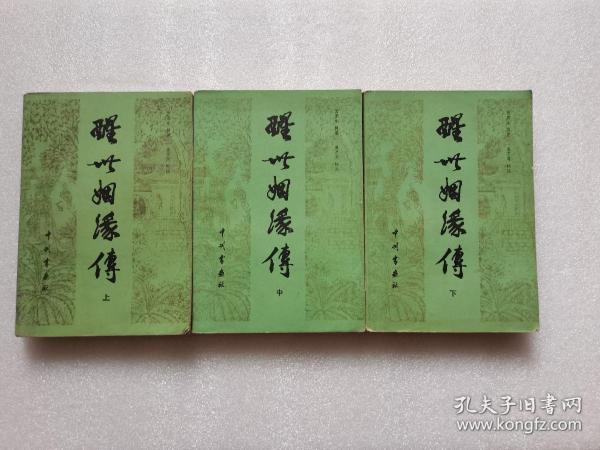 醒世姻緣傳
中州書画社
上
醒世姻緣傳
中州書画社
中
醒世姻緣傳
中州書画社
下
孔夫子旧書网
www.kongfz.com